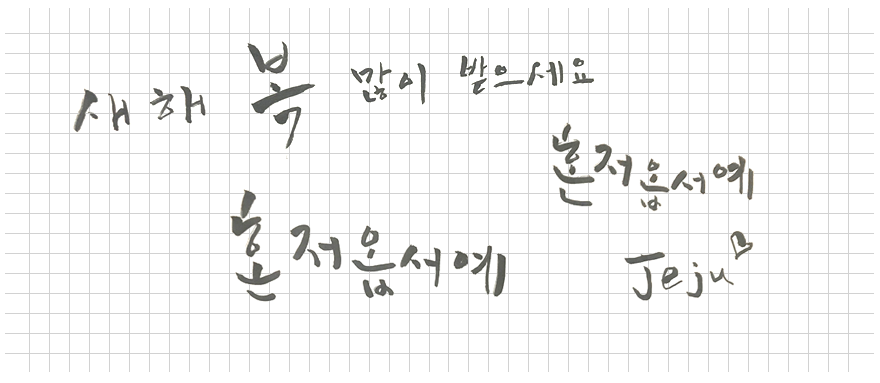 새해 복 많이 받으세요
혼저옵서예
혼저옵서예
Jeju